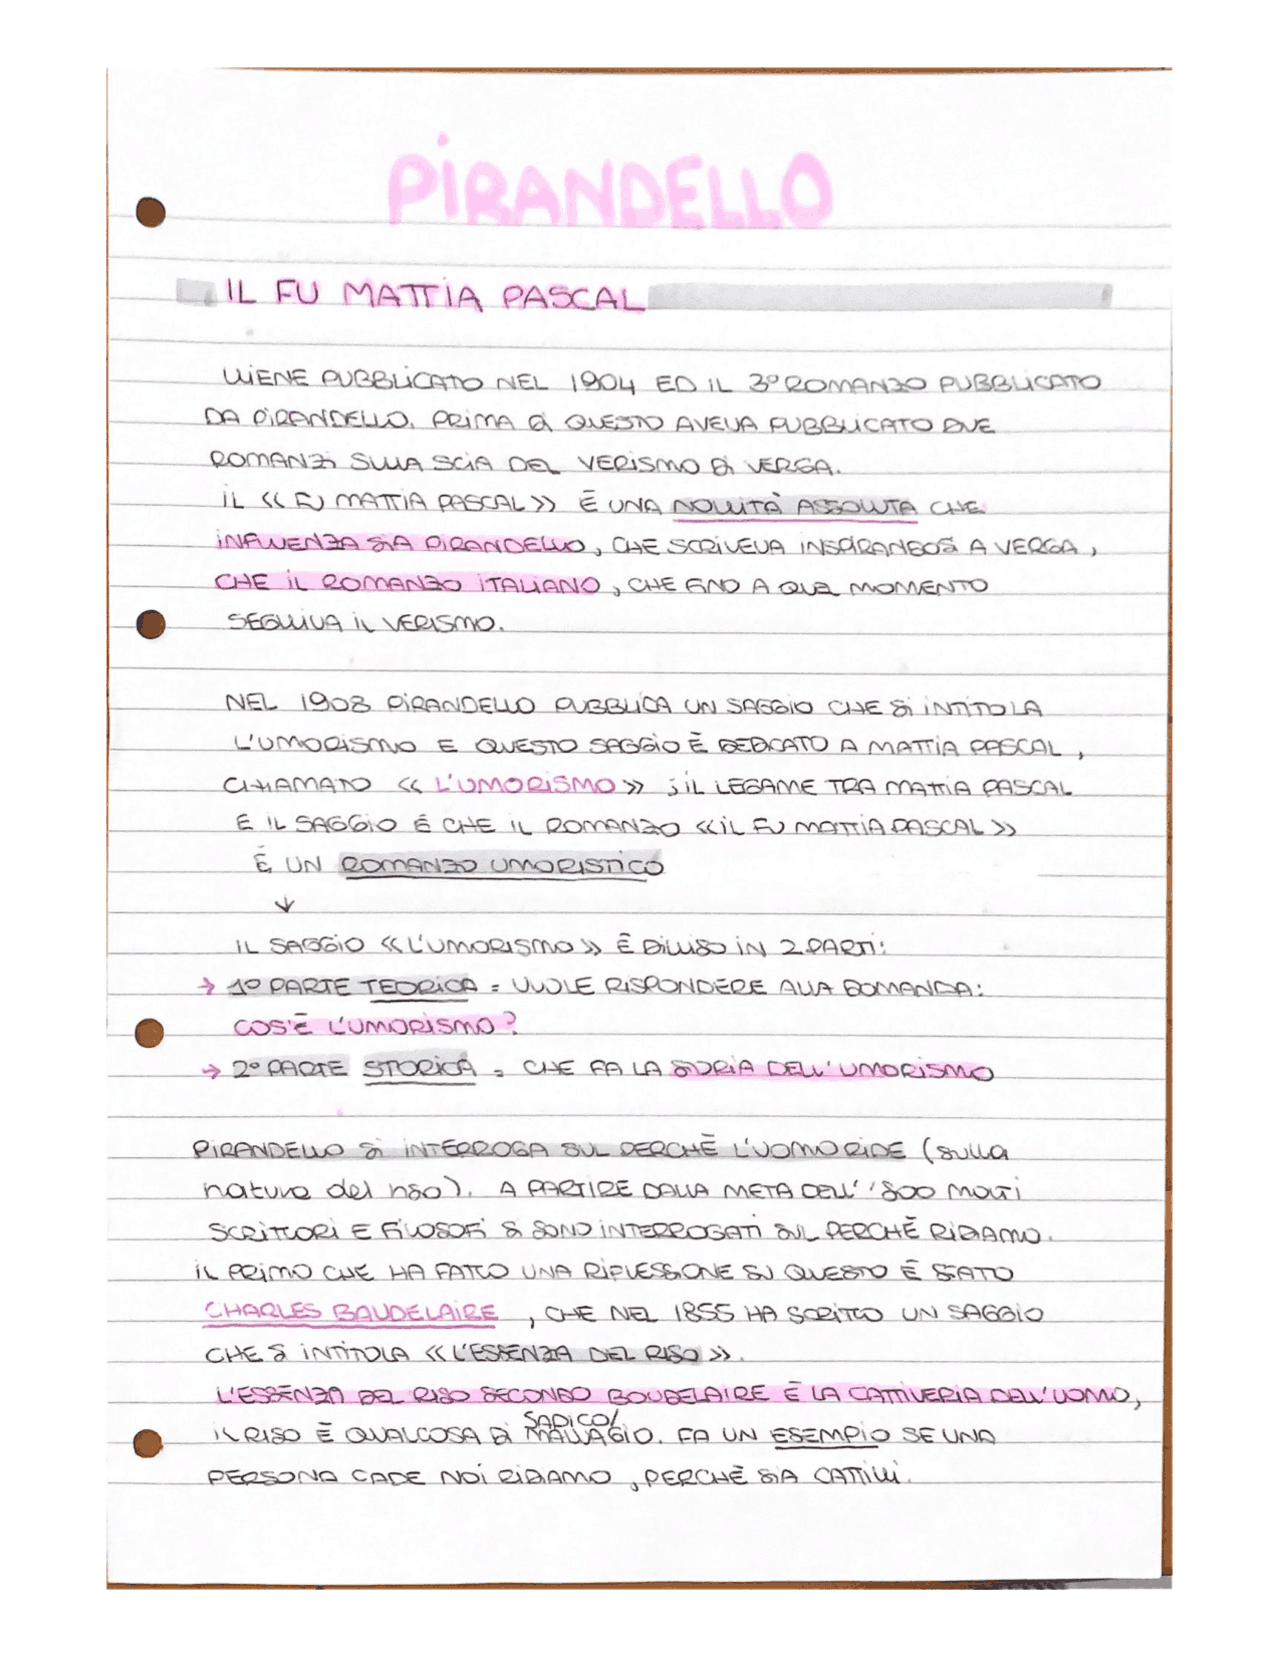 PIRANDELLO
IL FU MATTIA PASCAL
VIENE PUBBLICATO NEL 1904 ED IL 3º ROMANZO PUBBLICATO
DA PIRANDELLO. PRIMA DI QUESTO AVEVA PUBBLICATO DUE
ROMANZI SULLA SCIA DEL VERISMO DI VERGA.
IL << FU MATTIA PASCAL >> È UNA NOVITÀ ASSOLUTA CHE
INFLUENZA SIA PIRANDELLO, CHE SCRIVEVA INSPIRANDOSI A VERGA,
CHE IL ROMANZO ITALIANO, CHE FINO A QUEL MOMENTO
SEGUIVA IL VERISMO.
NEL 1908 PIRANDELLO PUBBLICA UN SAGGIO CHE SI INTITOLA
L'UMORISMO E QUESTO SAGGIO È DEDICATO A MATTIA PASCAL,
CHIAMATO << L'UMORISMO >> ; IL LEGAME TRA MATTIA PASCAL
E IL SAGGIO È CHE IL ROMANZO << IL FU MATTIA PASCAL >>
È UN ROMANZO UMORISTICO
↓
IL SAGGIO << L'UMORISMO >> È DIVISO IN 2 PARTI:
→ 1º PARTE TEORICA = VUOLE RISPONDERE ALLA DOMANDA:
COS'È L'UMORISMO?
→ 2º PARTE STORICA = CHE FA LA STORIA DELL'UMORISMO
PIRANDELLO SI INTERROGA SUL PERCHÈ L'UOMO RIDE (sulla
natura del riso). A PARTIRE DALLA META DELL' '800 MOLTI
SCRITTORI E FILOSOFI SI SONO INTERROGATI SUL PERCHÈ RIDIAMO.
IL PRIMO CHE HA FATTO UNA RIFLESSIONE SU QUESTO È STATO
CHARLES BAUDELAIRE, CHE NEL 1855 HA SCRITTO UN SAGGIO
CHE SI INTITOLA << L'ESSENZA DEL RISO >>.
L'ESSENZA DEL RISO SECONDO BOUDELAIRE È LA CATTIVERIA DELL'UOMO,
SADICO/
IL RISO È QUALCOSA DI MALVAGIO. FA UN ESEMPIO SE UNA
PERSONA CADE NOI RIDIAMO, PERCHÈ SIA CATTIVI.